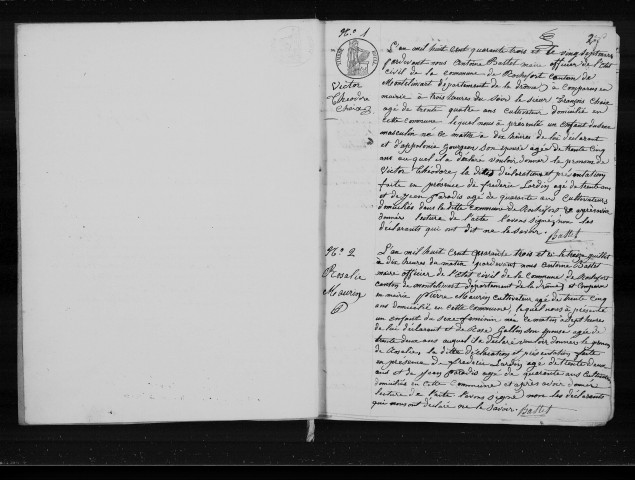 N.o 1
2
Victor
Théodre
Chaix
L'an mil huit cent quarante trois et le vingt septieme
pardevant nous Antoine Ballet maire officier de l'état
civil de la commune de Rochefort canton de
Montelimart département de la drome, a comparu en
mairie à trois heures du soir le sieur françois Chaix
agé de trente quatre ans cultivateur domicilié en
cette commune lequel nous à présenté un enfant du sexe
masculin né ce matin à dix heures de lui déclarant
et d'appolonie Gourgeon son épouse agée de trente cinq
ans au quel il a déclaré vouloir donner le prenom de
Victor Théodore, la dite déclaration et présentation
faite en présence de frederic Lardin agé de trente ans
et de jean Paradis agé de quarante ans cultivateurs
domiciliés dans la ditte commune de Rochefort et après avoir
donnés lecture de l'acte l'avons signé, non les
déclarants qui ont dit ne le savoir. Ballet
N.o 2
Rosalie
Maurin
L'an mil huit cent quarante trois et le treize juillet
à dix heures du matin pardevant nous Antoine Ballet
maire officier de l'état civil de la commune de Rochefort
canton de montelimart département de la drome, a comparu
en mairie pierre Maurin cultivateur agé de trente cinq
ans domicilié en cette commune, lequel nous à présenté
un enfant du sexe féminin née ce matin à sept heures
de lui déclarant et de Rose Gallin son épouse agée de
trente deux ans auquel il a déclaré vouloir donner le prenom
de Rosalie, la ditte déclaration et présentation faite
en présence de frederic Lardin agé de trente deux
ans et de jean Paradis agé de quarante ans cultivateurs
domiciliés en cette commune et après avoir donné
lecture de l'acte l'avons signé non les déclarants
qui nous ont déclaré ne le savoir. Ballet